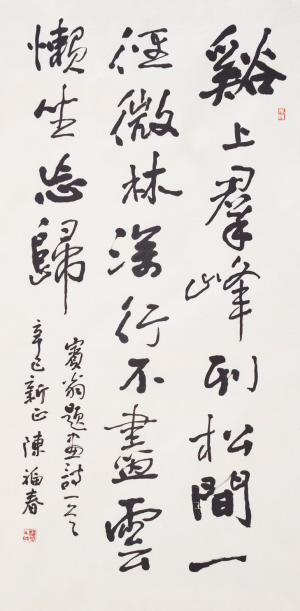 谿上羣峰列松間一
徑微林深行不盡雲
懶坐忘歸
賓翁題畫詩一
辛巳新正陳福春